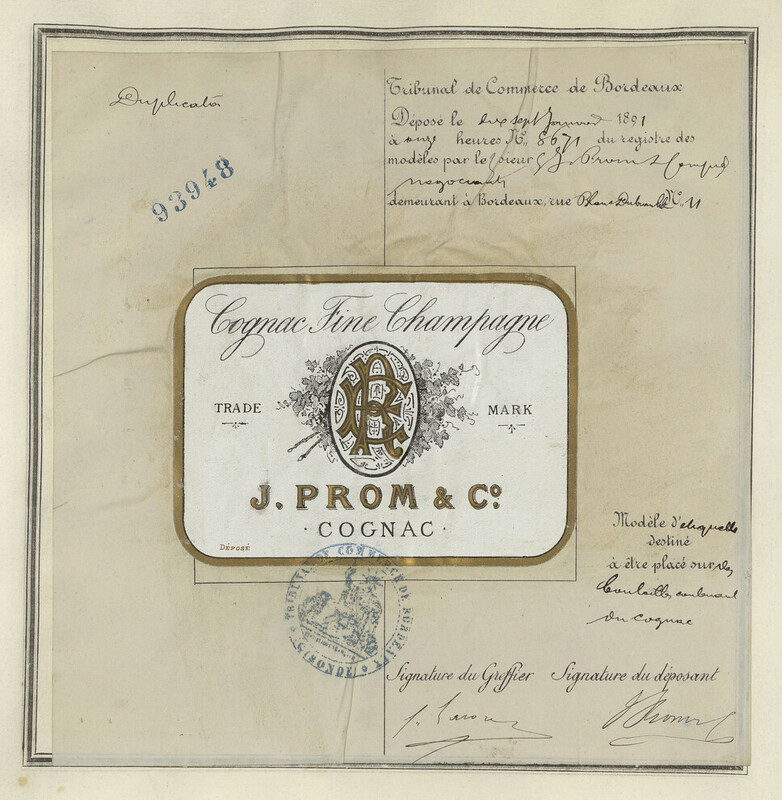 Duplicata
93948
Tribunal de Commerce de Bordeaux
Déposé le dix sept Janvier 1891
à onze heures No. 8671 du registre des
modèles par le sieur J. Prom & Compie
négociants
demeurant à Bordeaux, rue No. 11
Cognac Fine Champagne
TRADE MARK
J. PROM & Co.
· COGNAC ·
DÉPOSÉ
Modèle d'etiquette
destiné
à être placé sur des
bouteilles contenant
du cognac
TRIBUNAL DE COMMERCE DE BORDEAUX
(GIRONDE)
Signature du Greffier Signature du déposant